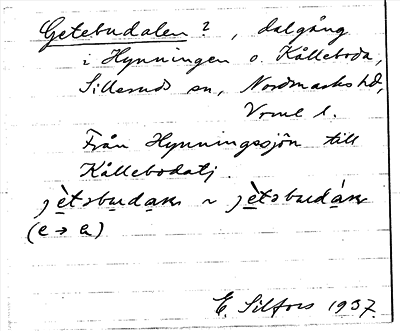 Getebudalen?, dalgång
i Hynningen o. Kålleboda,
Silleruds sn, Nordmarks hd,
Vrml l.
Från Hynningssjön till
Kållebodatj.
E. Silfors 1937.